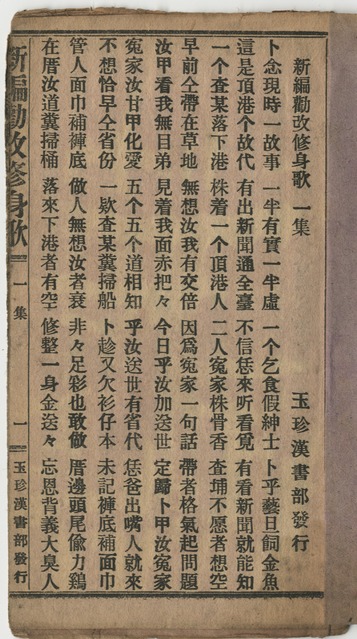 新編勸改修身歌 一集
玉珍漢書部發行
卜念現時一故事 一半有實一半虛 一个乞食假紳士 卜乎藝旦飼金魚
這是頂港个故代 有出新聞通全臺 不信恁來听看覓 有看新聞就能知
一个查某落下港 株着一个頂港人 二人冤家株骨香 查埔不愿者想空
早前仝帶在草地 無想汝我有交倍 因爲冤家一句話 帶者格氣起問題
汝甲看我無目弟 見着我面赤把々 今日乎汝加送世 定歸卜甲汝冤家
冤家汝甘甲化愛 五个五个道相知 乎汝送世有省代 恁爸出嘴人就來
不想恰早仝省份 一欵查某糞掃船 卜趁又欠衫仔本 未記褲底補面巾
管人面巾補褲底 做人無想汝者衰 非々足彩也敢做 厝邊頭尾偸力鷄
在厝汝道糞掃桶 落來下港者有空 修整一身金送々 忘恩背義大臭人
新編勸改修身歌 一集 一 玉珍漢書部發行